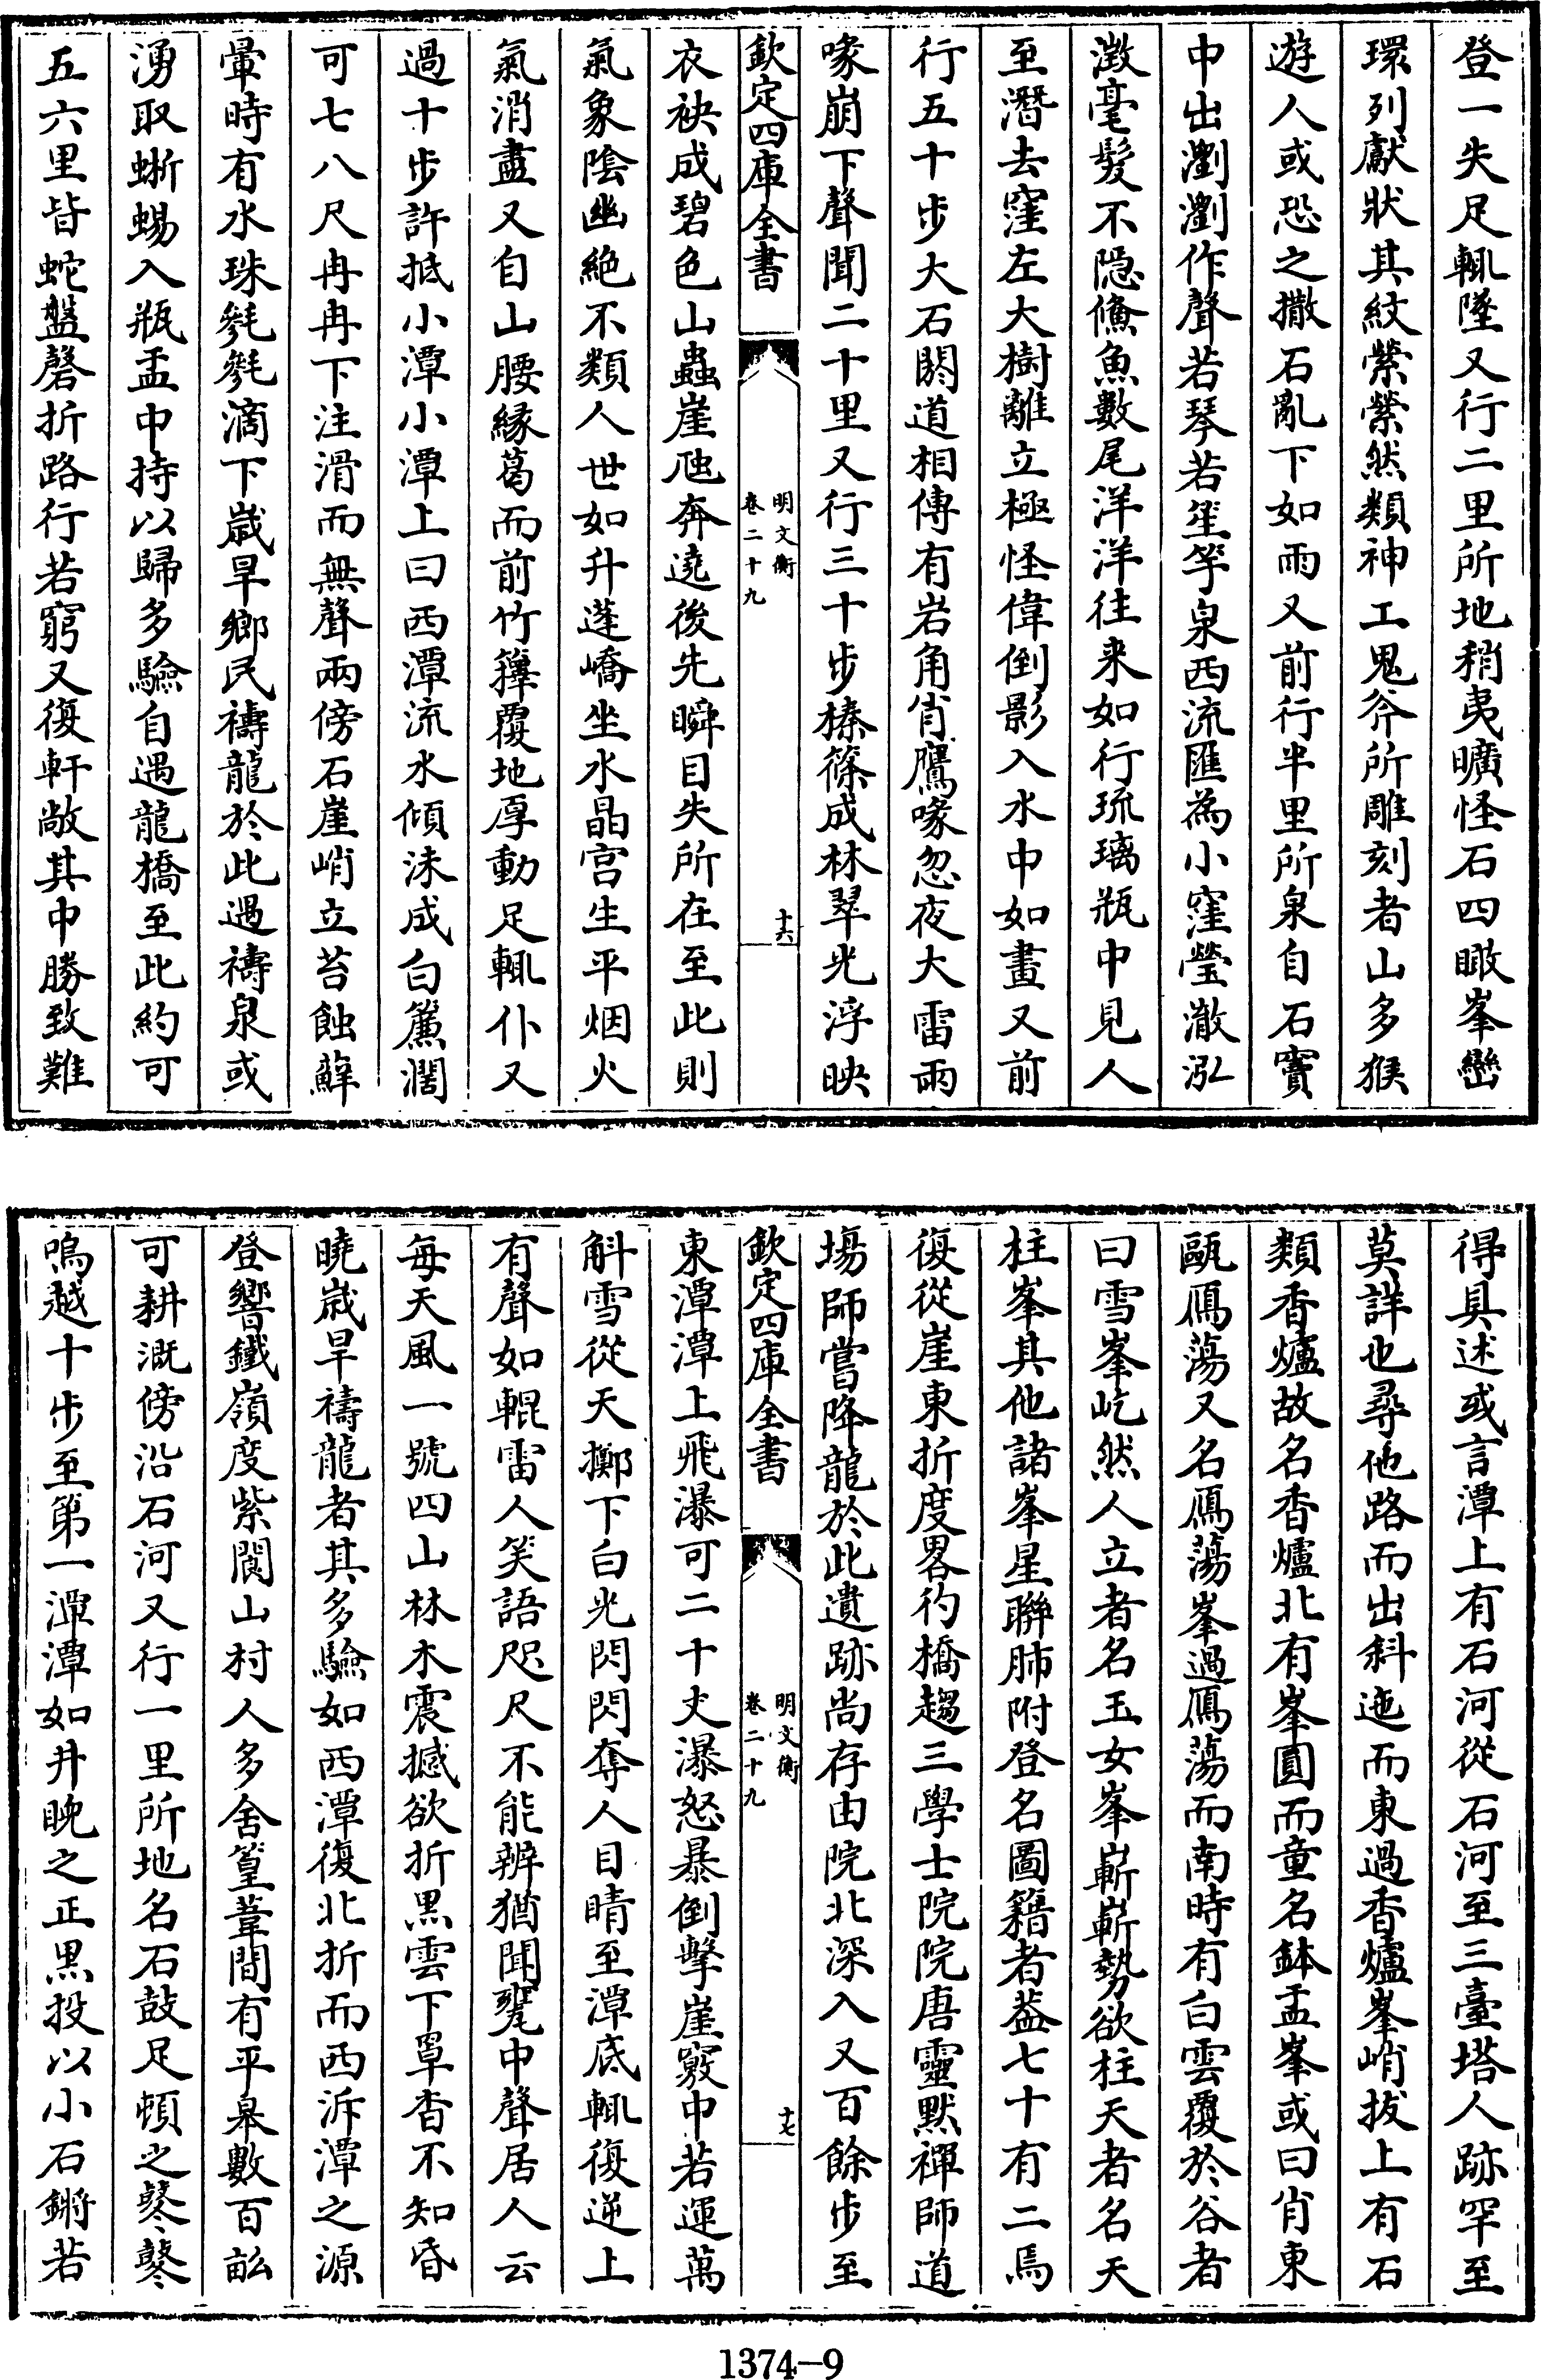 登一失足輒墜又行二里所地稍夷曠怪石四瞰峯巒
環列獻狀其紋縈縈然類神工鬼斧所雕刻者山多猴
遊人或恐之撒石亂下如雨又前行半里所泉自石竇
中出瀏瀏作聲若琴若笙竽泉西流匯為小窪瑩澈泓
澂毫髮不隠鯈魚數尾洋洋往来如行琉璃瓶中見人
至潛去窪左大樹離立極怪偉倒影入水中如畫又前
行五十步大石閼道相傳有岩角肖鷹喙忽夜大雷雨
喙崩下聲聞二十里又行三十步榛篠成林翠光浮映
欽定四庫全書
明文衡
卷二十九
十六
衣袂成碧色山蟲崖虺奔遶後先瞬目失所在至此則
氣象陰幽絶不類人世如升蓬嶠坐水晶宮生平烟火
氣消盡又自山腰緣葛而前竹籜覆地厚動足輒仆又
過十步許抵小潭小潭上曰西潭流水傾洙成白簾濶
可七八尺冉冉下注滑而無聲兩傍石崖峭立苔蝕蘚
暈時有水珠毿毿滴下歲旱鄉民禱龍於此遇禱泉或
湧取蜥蜴入瓶盂中持以歸多驗自遇龍橋至此約可
五六里皆蛇盤磬折路行若窮又復軒敞其中勝致難
得具述或言潭上有石河從石河至三臺塔人跡罕至
莫詳也尋他路而出斜迤而東過香爐峯峭拔上有石
類香爐故名香爐北有峯圓而童名鉢盂峯或曰肖東
甌鴈蕩又名鴈蕩峯過鴈蕩而南時有白雲覆於谷者
曰雪峯屹然人立者名玉女峯嶄嶄勢欲柱天者名天
柱峯其他諸峯星聯肺附登名圖籍者葢七十有二焉
復從崖東折度畧彴橋趨三學士院院唐靈黙禪師道
場師嘗降龍於此遺跡尚存由院北深入又百餘步至
欽定四庫全書
明文衡
卷二十九
十七
東潭潭上飛瀑可二十丈瀑怒暴倒擊崖竅中若運萬
斛雪從天擲下白光閃閃奪人目睛至潭底輒復逆上
有聲如輥雷人笑語咫尺不能辨猶聞甕中聲居人云
每天風一號四山林木震撼欲折黒雲下罩杳不知昏
曉歲旱禱龍者其多驗如西潭復北折而西泝潭之源
登響鐵嶺度紫閬山村人多舍篁葦間有平皋數百畝
可耕溉傍沿石河又行一里所地名石鼓足頓之鼕鼕
嗚越十步至第一潭潭如井睌之正黒投以小石鏘若
1374-9